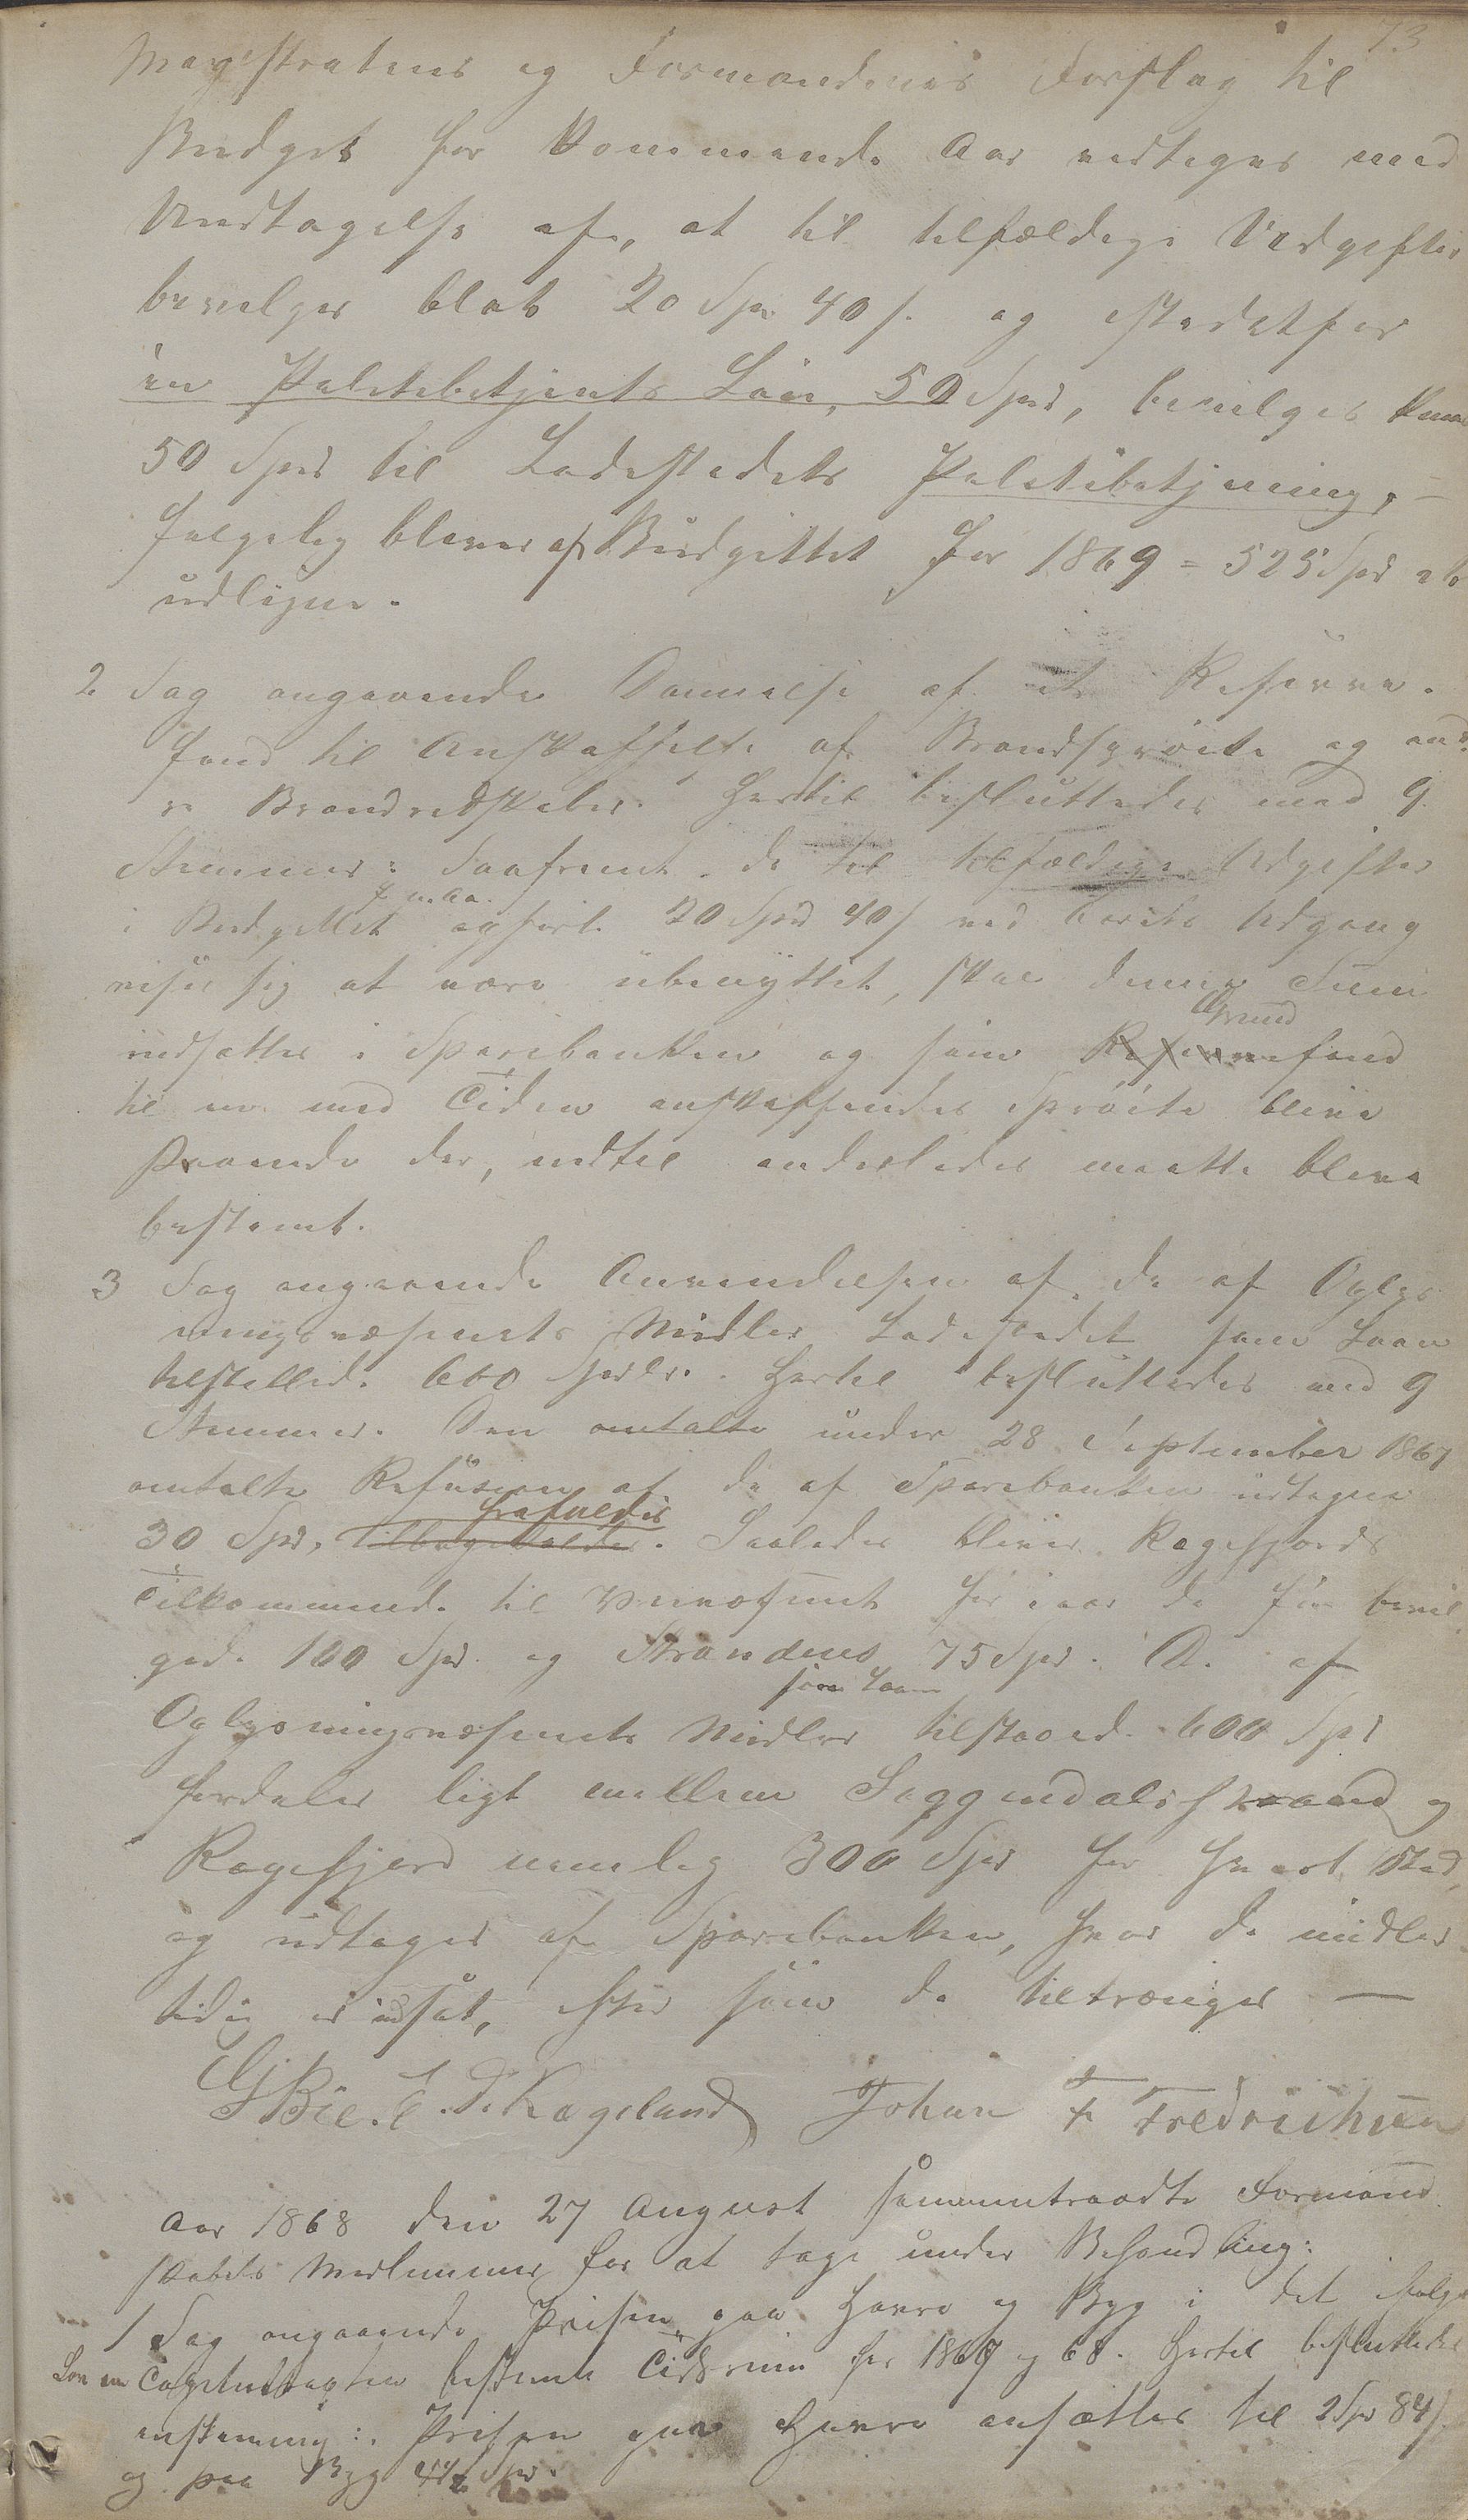 73
Magistratens og Formandens Forslag til
Budget for kommende Aar vedtages med
Undtagelse af, at til tilfældige Udgifter
bevilges blot 20 Spd 40 s. og istedetfor
en Politibetjents Løn, 50 Spd, bevilges kun
50 Spd til Ladestedets Politibetjening, –
følgelig bliver af Budgettet for 1869 = 525 Spd at
udligne.
2. Sag angaaende Dannelse af et Reserve-
fond til Anskaffelse af Brandsprøite og and-
re Brandredskaber. Hertil besluttedes med 9
Stemmer: Saafremt de til tilfældige Udgifter
i Budgettet opført 20 Spd 40 s ved Aarets Udgang
viser sig at være ubenyttet, skal denne Sum
indsættes i Sparebanken og som Reservefond
Grund
til en med Tiden anskaffendes Sprøite blive
staaende der, indtil anderledes maatte blive
bestemt.
3 Sag angaaende Anvendelsen af de af Oplys-
ningsvæsenets Midler Ladestedet som Laan
tilstillede 600 Spdlr. Hertil besluttedes med 9
Stemmer. Den omtalte under 28 September 1867
omtalte Refusion af de af Sparebanken udtagne
frafaldes
30 Spd, tilbageholdes. Saaledes bliver Ragefjords
Tilkommende til for iaar de før bevil-
gede 100 Spd og Strandens 75 Spd. De af
som Laan
Oplysningsvæsenets Midler tilstaaede 600 Spd
fordeles ligt mellem Soggendalsstrand og
Ragefjord nemlig 300 Spd for hvert Sted,
og udtages af Sparebanken, hvor de midler-
tidig er indsat, efter som de tiltrænges —
Rageland Johan F Fredrichsen
Aar 1868 den 27 August sammentraadte Formand-
skabets Medlemmer for at tage under Behandling:
1 Sag angaaende Prisen paa Havre og Byg i det ifølge
bestemte Tidsrum for 1867 og 68. Hertil besluttedes
enstemmig: Prisen paa Havre ansættes til 2 Spd 84 s.
og paa Byg 4½ Spd.